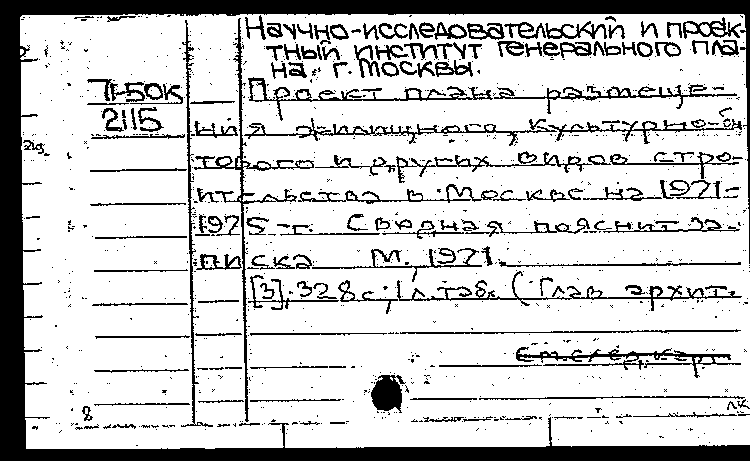 Научно-исследовательский и проек-
тный институт генерального пла-
на г. Москвы.
П-50К
Проект плана размеще-
2115
ния жилищного, культурно-бы
тового и других видов стро-
ительства в Москве на 1971-
1975 г. Сводная пояснит за-
писка М., 1971.
[3], 328 с; 1 л. табл. (Глав архит.
См. след. карт
8